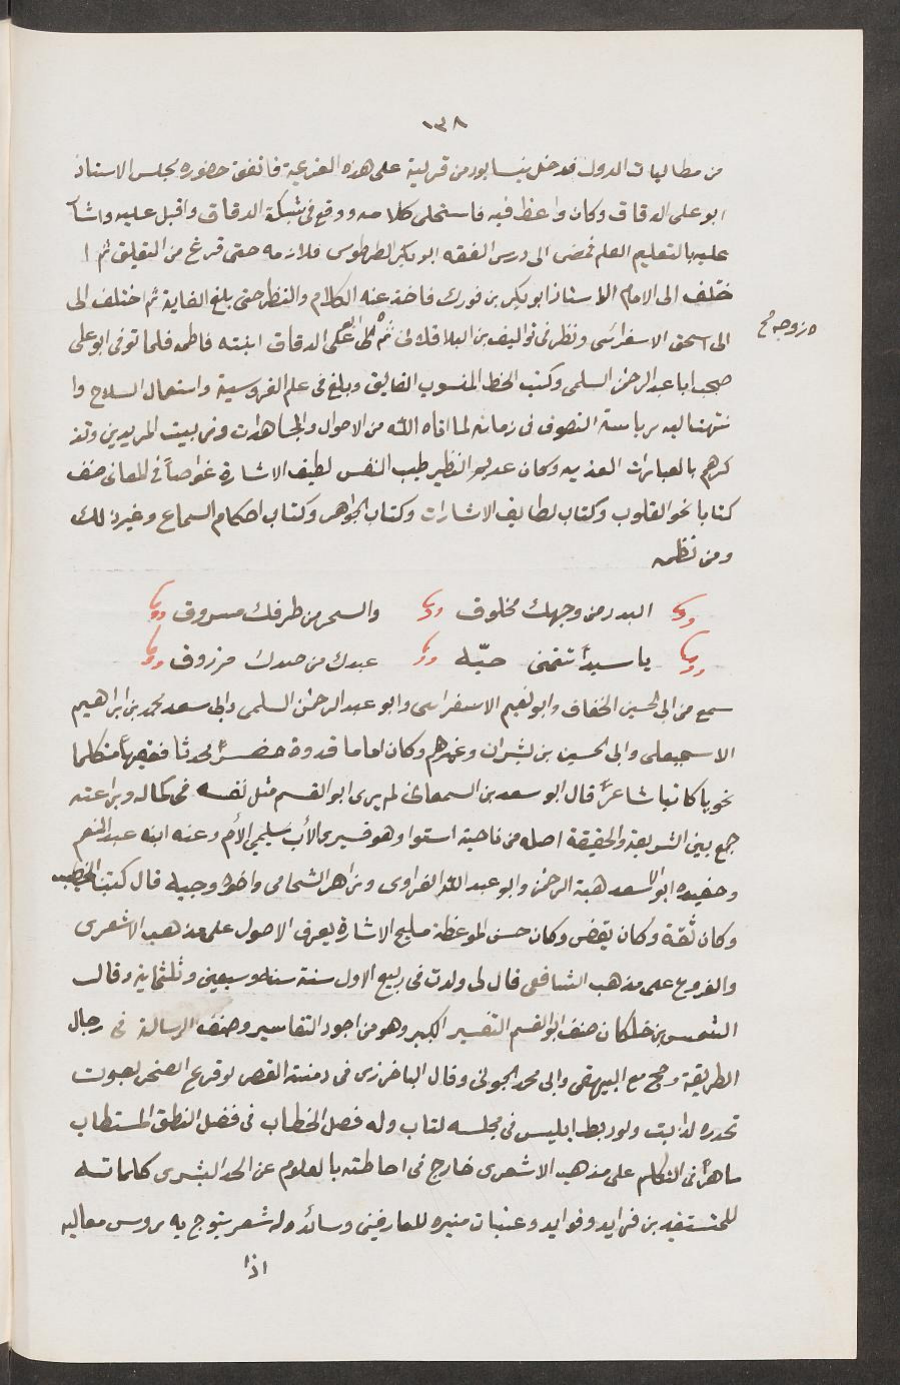 ١٣٨
من مطالبات الدول فدخل نيسابور من قرية على هذه العزيمة فاتفق حضوره مجلس الاستاذ
ابو على الدقاق وكان واعظ فيه فاستحلى كلامه ووقع فى شبكة الدقاق واقبل عليه واشار
عليه بالتعليم العلم فمضى الى درس الفقه ابو بكر الطرطوسى فلازمه حتى فرغ من التعليق ثم ا
ختلف الى الامام الاستاذ ابو بكر بن فورك فاخذ عنه الكلام والنظر حتى بلغ الغاية ثم اختلف الى
الى اسحق الاسفرائنى ونظر فى تواليف بن الباقلانى ثم على الدقاق ابنته فاطمه فلما توفى ابو على
وزوجه
صحب ابا عبد الرحمن السلمى وكتب الخط المنسوب الفايق وبلغ فى علم الفروسية واستعمال السلاح وا
نتهت اليه رياسة التصوف فى زمانه لما اتاه الله من الاحوال والمجاهدات وتربيت المريدين وتذ
كرهم بالعبارات العذبه وكان عديم النظير طيب النفس لطيف الاشارة غواصاً فى المعانى صنف
كتابا نحو القلوب وكتاب لطايف الاشارات وكتاب الجواهر وكتاب احكام السماع وغير ذلك
ومن نظمه
البدر من وجهك مخلوق والسحر من طرفك مسروق
يا سيداً تيمنى حبّه عبدك من صدك مرزوق
سمع من ابى الحسين الخفاف وابو نعيم الاسفراىنى وابو عبد الرحمن السلمى وابى سعد محمد بن ابراهيم
الاسمعيلى وابى الحسين بن بشران وغيرهم وكان اماما قدوة مفسراً محدثا فقيهاً متكلما
نحويا كاتبا شاعراً قال ابو سعد بن السمعانى لم يرى ابو القسم مثل نفسه فى كماله وبراعته
جمع بين الشريعة والحقيقة اصله من ناحية استوا وهو قسيرى الأب سليمي الأم وعنه ابنه عبد المنعم
وحفيده ابو الاسعد هبة الرحمن وابو عبد الله الفراوى وزاهر الشحامى واخوه وجيه قال كتبنا الخطيب
وكان ثقة وكان يقض وكان حسن الموعظة مليح الاشارة يعرف الاصول على مذهب الاشعرى
والفروع على مذهب الشافعى قال لى ولدت فى ربيع الاول سنة ست وسبعين وثلثماية وقال
الشمس بن خلكان صنف ابو القسم التفسير الكبير وهو من اجود التفاسير وصنف الرسالة فى رجال
الطريقة وحج مع البيهقى وابى محمد الجوينى وقال الباخرزى فى دمنته القصر لو قرع الصخر بصوت
تحذره لذابت ولو ربط ابليس فى مجلسه لتاب وله فصل الخطاب فى فضل النطق المستطاب
ماهراً فى التكلم على مذهب الاشعرى خارج فى احاطته بالعلوم عن الحد البشرى كلماته
للمستفيدين فرايد وفوايد وعتبات منبره للعارفين وسائد وله شعر يتوج به روس معاليه
اذا